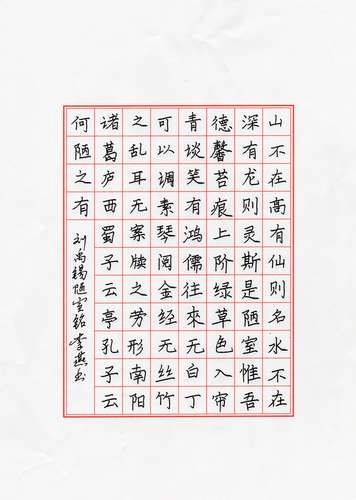 山不在高有仙则名水不在
深有龙则灵斯是陋室惟吾
德馨苔痕上阶绿草色入帘
青谈笑有鸿儒往來无白丁
可以调素琴阅金经无丝竹
之乱耳无案牍之劳形南阳
诸葛庐西蜀子云亭孔子云
何陋之有
刘禹锡陋室铭 李燕书